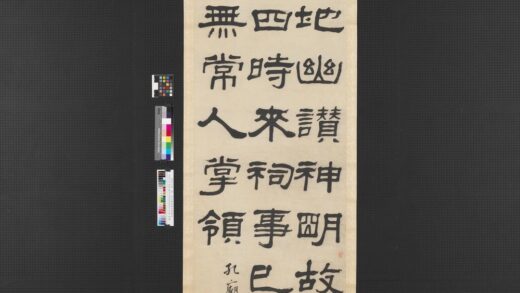 地幽讃神明故
四時来祠事已
無常人掌領
孔廟